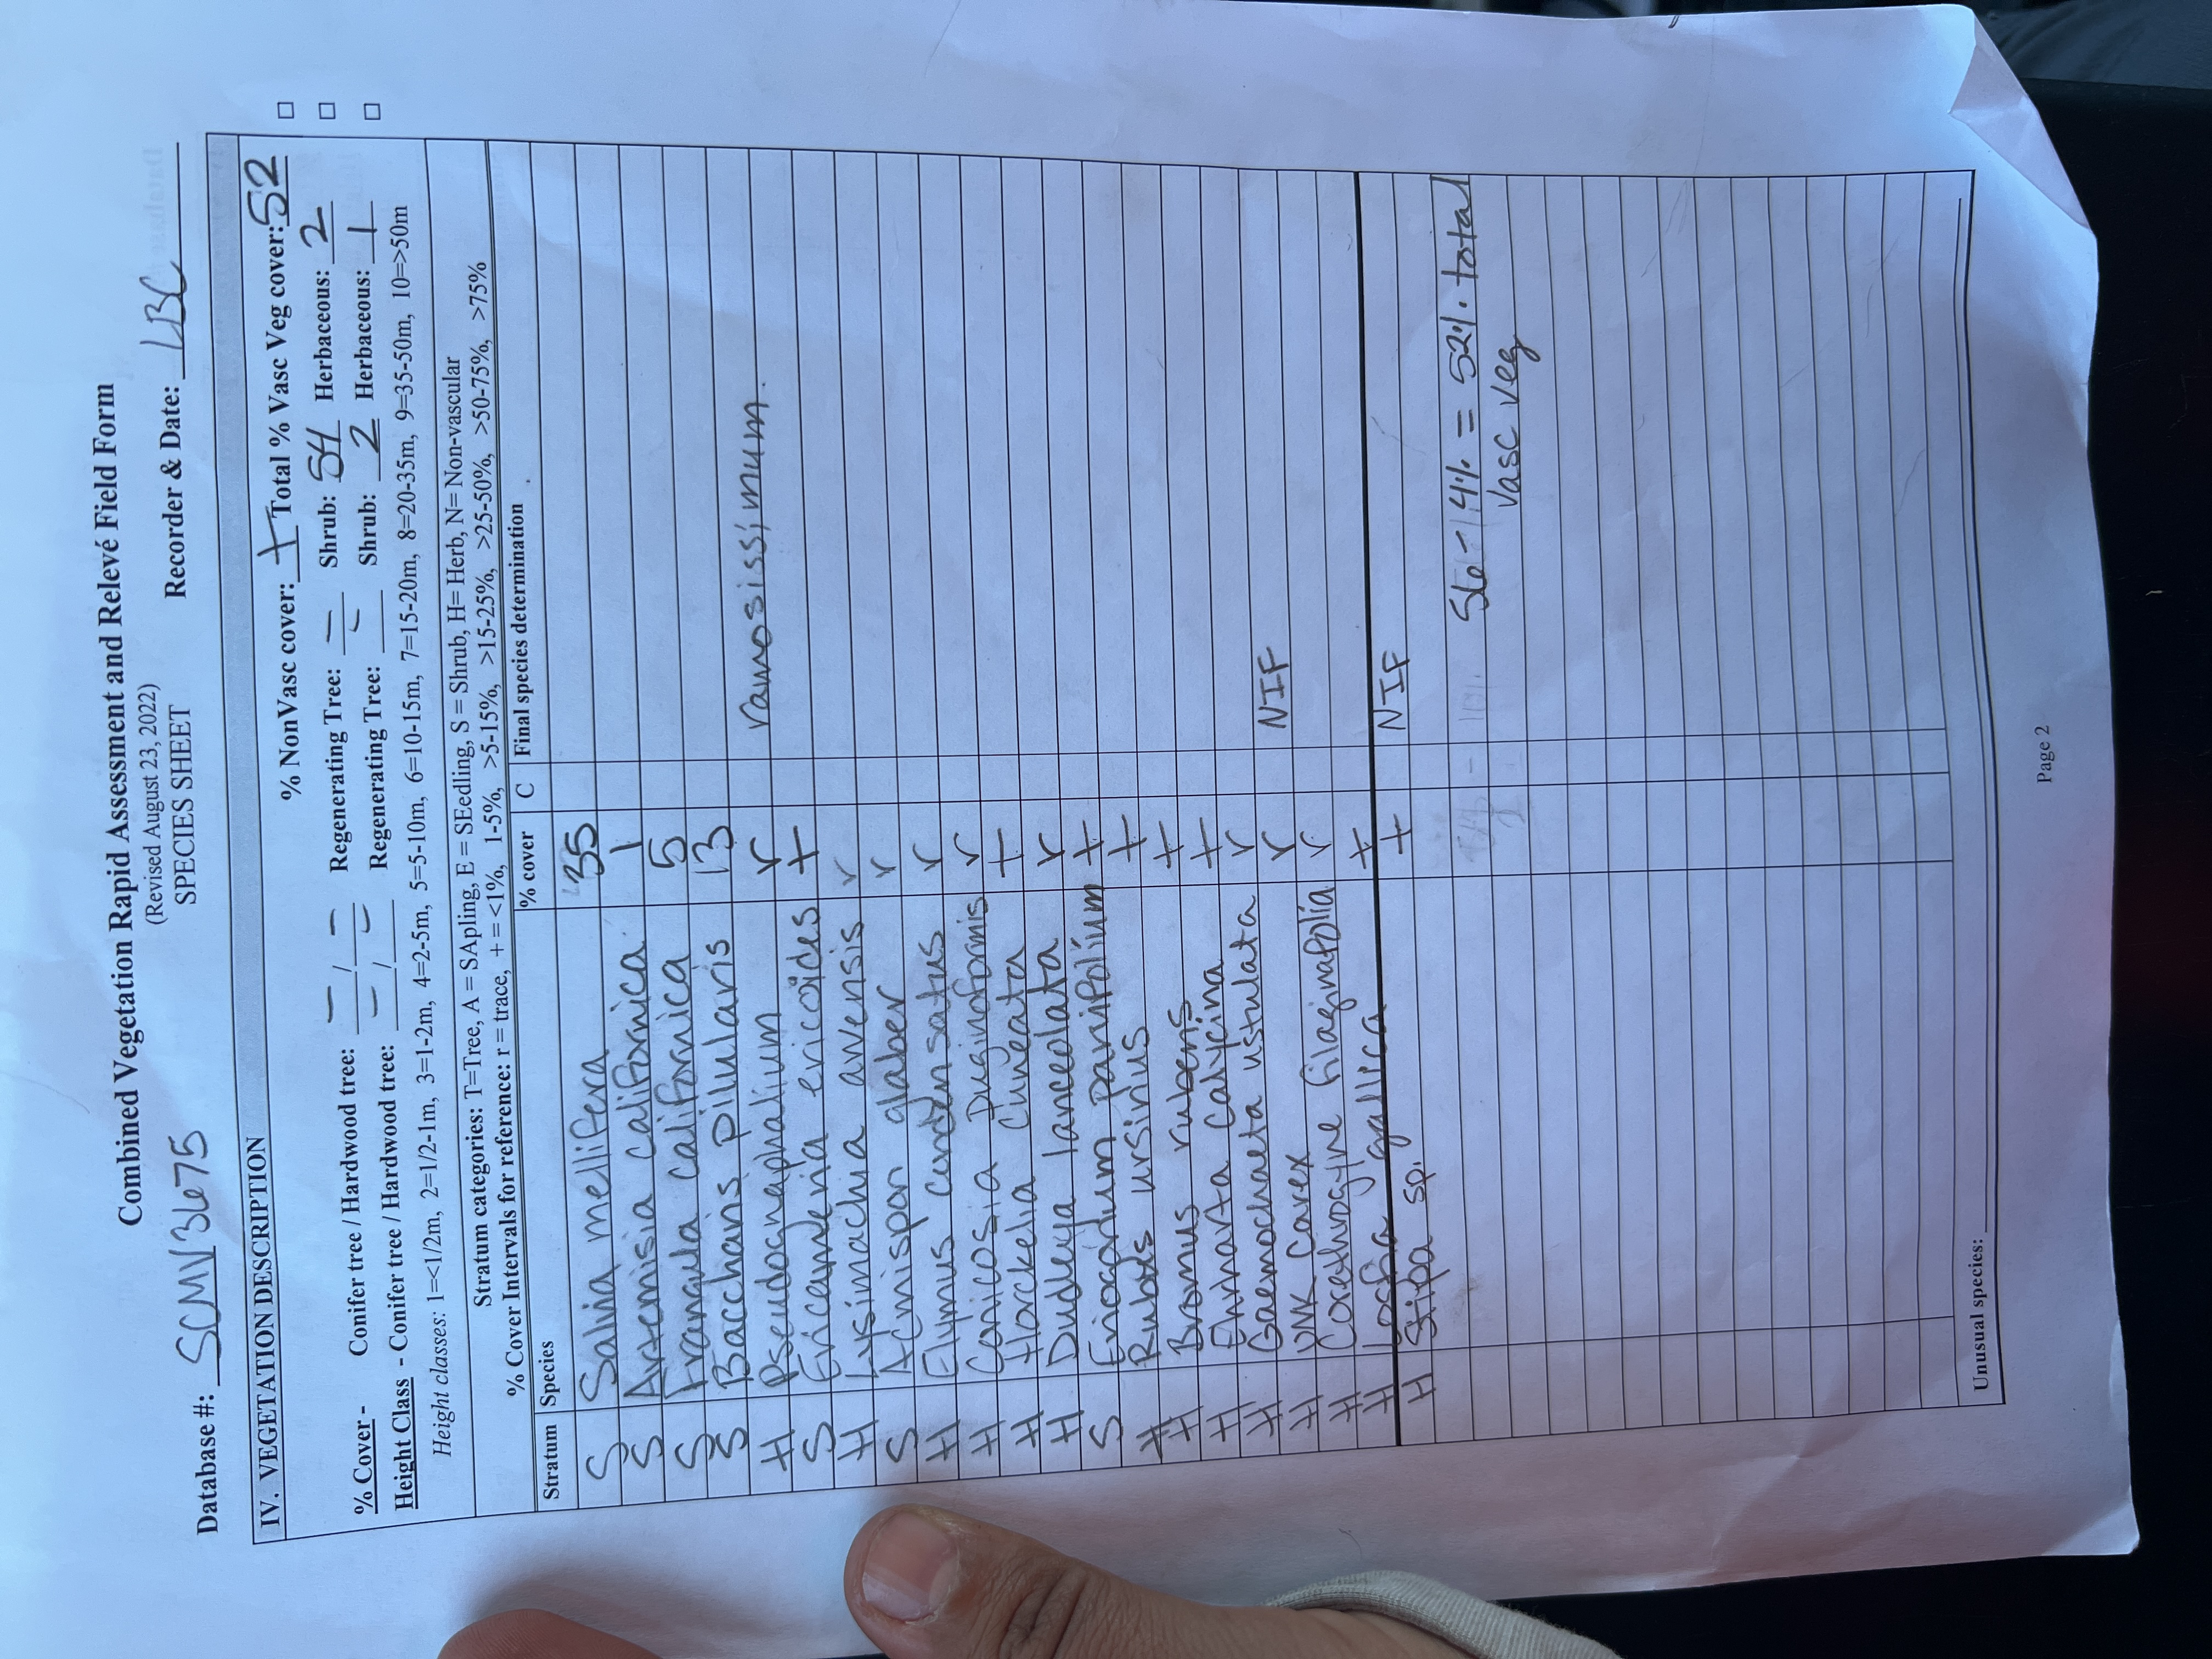 Combined Vegetation Rapid Assessment and Relevé Field Form
(Revised August 23, 2022)
SPECIES SHEET
Database #: SCMV3675 Recorder & Date: LBC
IV. VEGETATION DESCRIPTION
% NonVasc cover: + Total % Vasc Veg cover: 52
% Cover - Conifer tree / Hardwood tree: — / — Regenerating Tree: — Shrub: 54 Herbaceous: 2
Height Class - Conifer tree / Hardwood tree: — / — Regenerating Tree: — Shrub: 2 Herbaceous: 1
Height classes: 1=<1/2m, 2=1/2-1m, 3=1-2m, 4=2-5m, 5=5-10m, 6=10-15m, 7=15-20m, 8=20-35m, 9=35-50m, 10=>50m
Stratum categories: T=Tree, A = SApling, E = SEedling, S = Shrub, H= Herb, N= Non-vascular
% Cover Intervals for reference: r = trace, + = <1%, 1-5%, >5-15%, >15-25%, >25-50%, >50-75%, >75%
Stratum Species % cover C Final species determination
S Salvia mellifera 35
S Artemisia californica 1
S Frangula californica 5
S Baccharis pilularis 13
H Pseudognaphalium r ramosissimum
S Ericameria ericoides +
H Lysimachia arvensis r
S Acmispon glaber r
H Elymus condensatus r
H Conicosia pugioniformis r
H Horkelia cuneata +
H Dudleya lanceolata r
S Eriogonum parvifolium +
H Rubus ursinus +
H Bromus rubens +
H Ehrharta calycina +
H Gaemochaeta ustulata r
H UNK Carex r NIF
H Corethrogyne filaginafolia r
H Logfia gallica +
H Stipa sp. + NIF
56 - 4% = 52% total
vasc veg
Unusual species:
Page 2